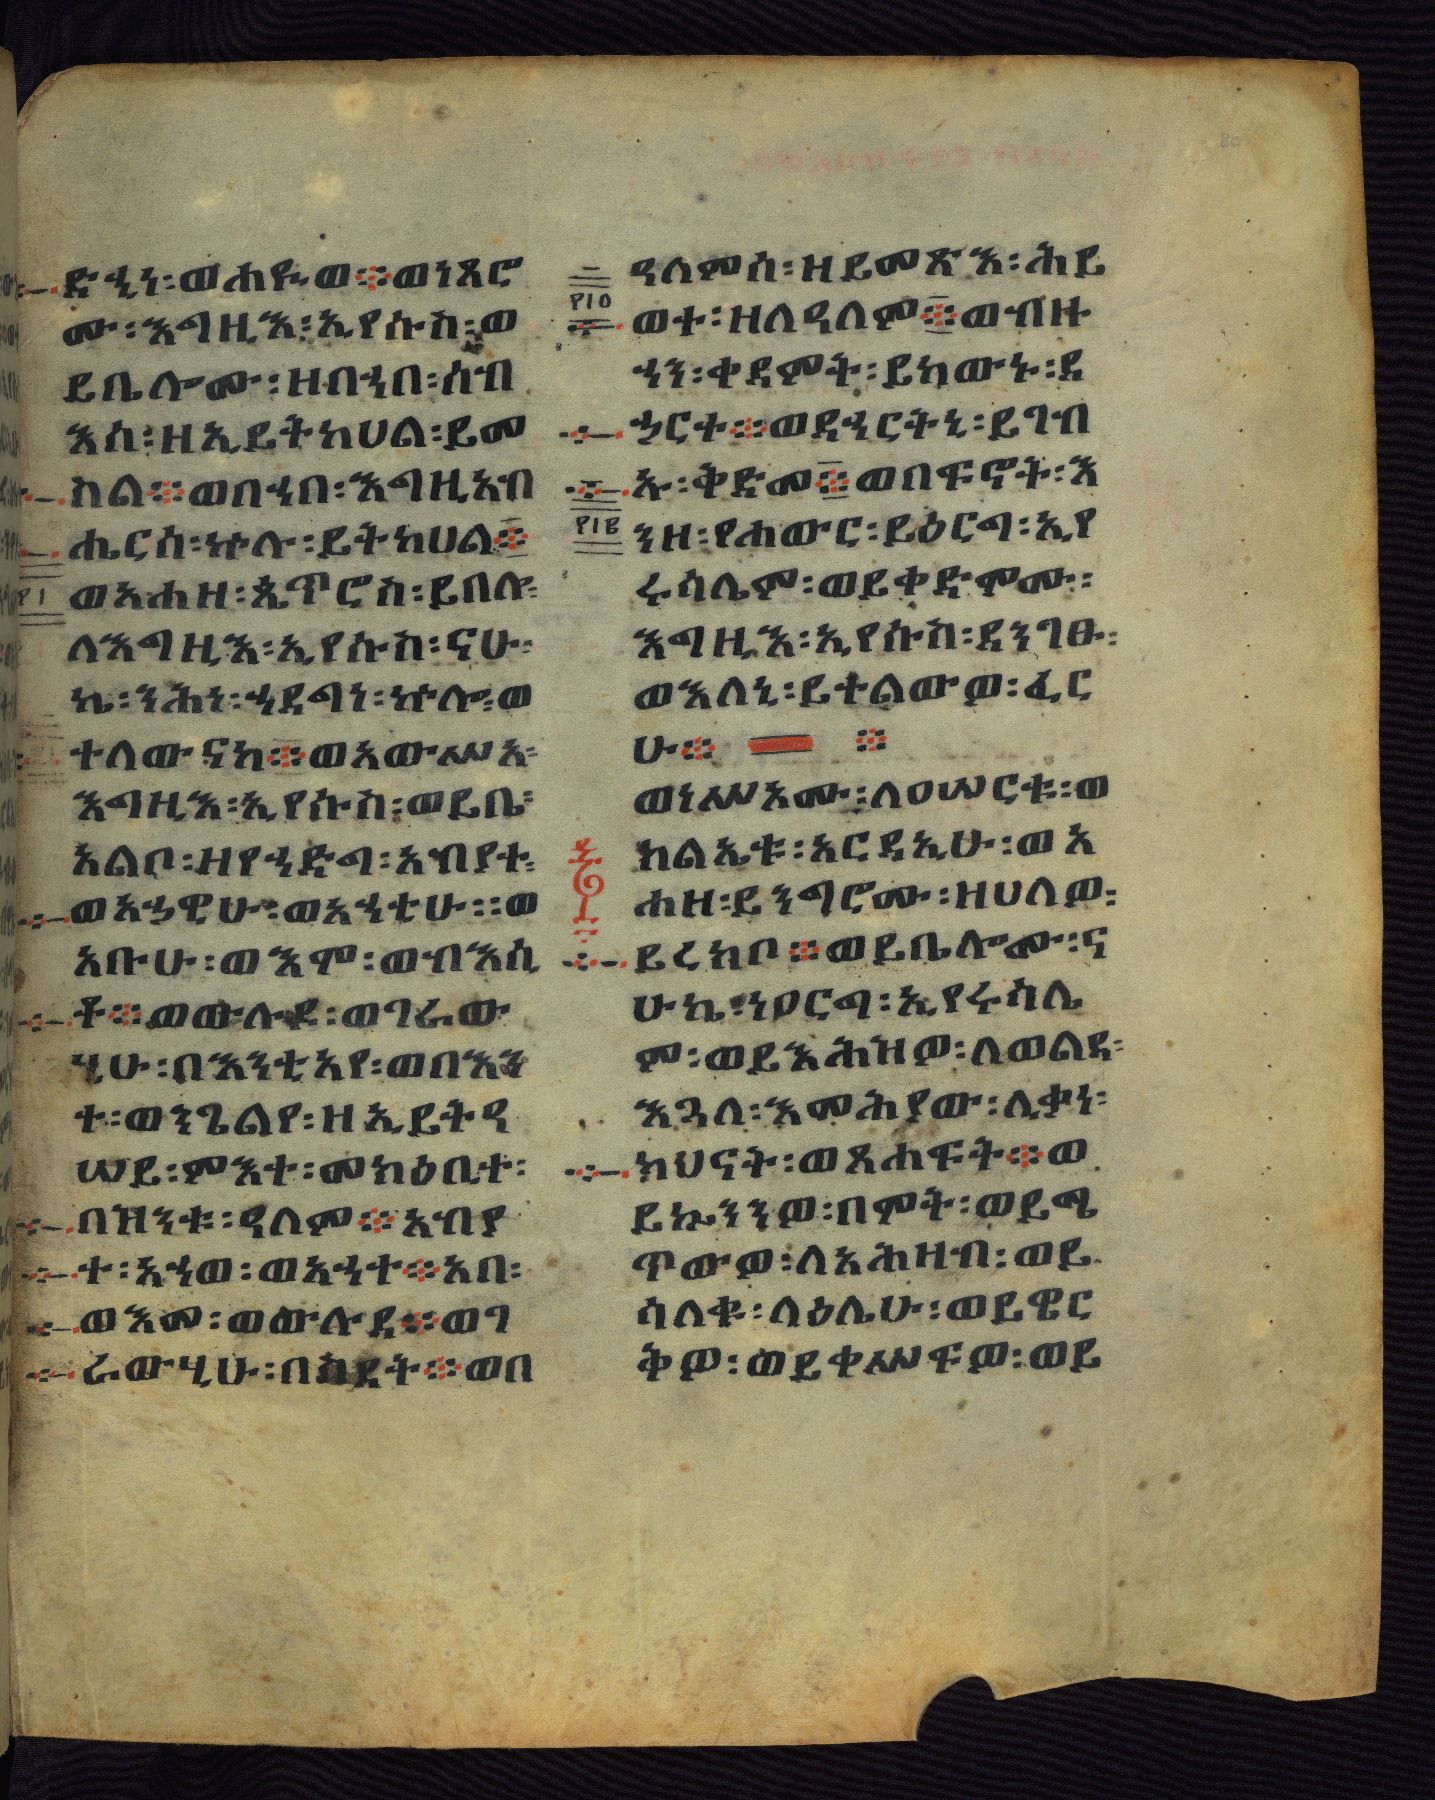 ድኂነ፡ወሐዪወ፨ወነጸሮ
ሙ፡እግዚእ፡ኢየሱስ፡ወ
ይቤሎሙ፡ዘበኀበ፡ሰብ
እሰ፡ዘኢይትከሀል፡ይመ
ስል፨ወበኀበ፡እግዚአብ
ሔርሰ፡ኵሉ፡ይትከሀል፨
ወአሐዘ፡ጴጥሮስ፡ይበሎ፡
ለእግዚእ፡ኢየሱስ፡ናሁ፡
ኬ፡ንሕነ፡ኀደግነ፡ኵሎ፡ወ
ተለውናከ፨ወአውሥአ፡
እግዚእ፡ኢየሱስ፡ወይቤ፡
አልቦ፡ዘየኀድግ፡አብያተ፡
ወአኃዊሁ፡ወአኀቲሁ፡፡ወ
አቡሁ፡ወእሞ፡ወብእሲ
ቶ፨ወውሉደ፡ወገራው
ሂሁ፡በእንቲአየ፡ወበእን
ተ፡ወንጌልየ፡ዘኢይትዓ
ሠይ፡ምእተ፡መክዕቢተ፡
በዝንቱ፡ዓለም፨አብያ
ተ፡አኀወ፡ወአኀተ፨አበ፡
ወእመ፡ወውሉደ፨ወገ
ራውሂሁ፡በስደት፨ወበ
ዓለምሰ፡ዘይመጽእ፡ሕይ
፻፲፬
ወተ፡ዘለዓለም፨ወብዙ
ኀን፡ቀዳምት፡ይከውኑ፡ደ
ኃርተ፨ወደኀርትኒ፡ይገብ
ኡ፡ቅድመ፨ወበፍኖት፡እ
፻፲፪
ንዘ፡የሐውር፡ይዕርግ፡ኢየ
ሩሳሌም፡ወይቀድሞሙ፡
እግዚእ፡ኢየሱስ፡ደንገፁ፡
ወእለኒ፡ይተልውዎ፡ፈር
ሁ፨ ፨
ወነሥአሙ፡ለዐሠርቱ፡ወ
ክልኤቱ፡አርዳኢሁ፡ወአ
ሐዘ፡ይንግሮሙ፡ዘሀለዎ፡
ይረክቦ፨ወይቤሎሙ፡ና
ሁኬ፡ነዐርግ፡ኢየሩሳሌ
ም፡ወይእሕዝዎ፡ለወልደ፡
እጓለ፡እመሕያው፡ሊቃነ፡
ክህናት፡ወጸሐፍት፨ወ
ይኴንንዎ፡በሞት፡ወይሜ
ጥውዎ፡ለአሕዛብ፡ወይ
ሳለቁ፡ላዕሌሁ፡ወይዌር
ቅዎ፡ወይቀሥፍዎ፡ወይ